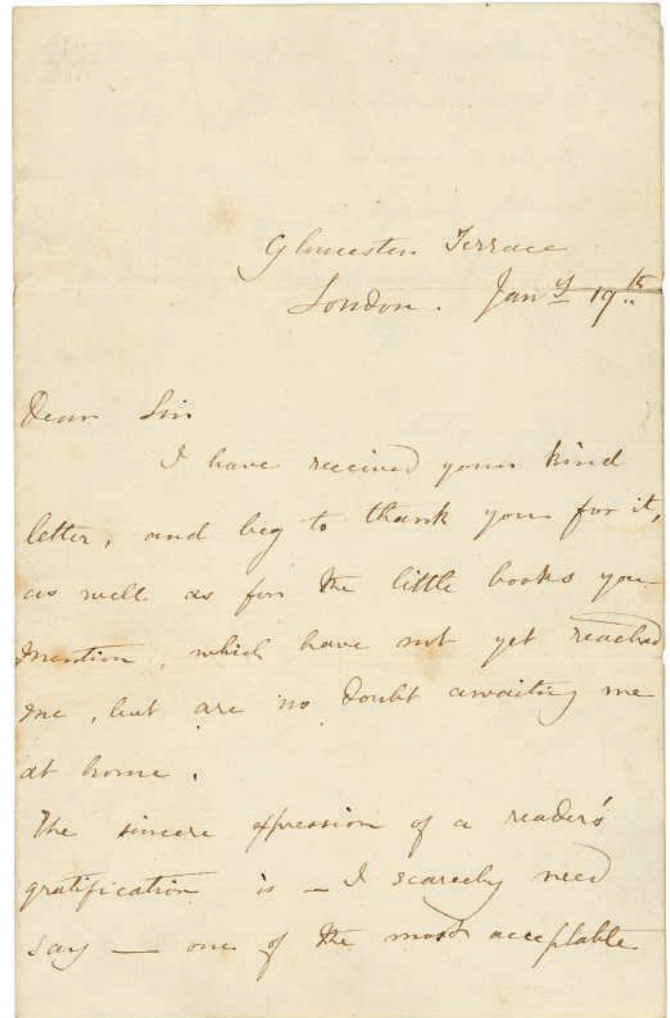 Gloucester Terrace
London. Jany 19th
Dear Sir
I have received your kind
letter, and beg to thank you for it,
as well as for the little books you
mention, which have not yet reached
me, but are no doubt awaiting me
at home.
The sincere expression of a reader's
gratification is – I scarcely need
say — one of the most acceptable